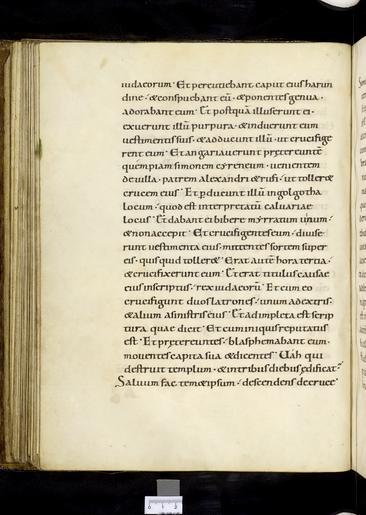 iudaeorum· Et percutiebant caput eius harun
dine· & conspuebant eū· & ponentes genua·
adorabant eum· Et postquā illuserunt ei·
exuerunt illū purpura· & induerunt eum
uestimentis suis· & adducunt illū· ut crucifige
rent eum· Et angariauerunt pr&ereuntē
quempiam simonem cyreneum· uenientem
de uilla· patrem alexandri & rufi· ut toller&
crucem eius· Et pducunt illū in golgotha
locum· quod est interpretatū caluariae
locus· Et dabant ei bibere myrratum uinum·
& non accepit· Et crucifigentes eum· diuise
runt uestimenta eius· mittentes sortem super
eis· quis quid toller&· Erat autē hora tertia·
& crucifixerunt eum· Et erat titulus causae
eius inscriptus· rex iudaeorū· Et cum eo
crucifigunt duos latrones· unum ad extris·
& alium a sinistris eius· Et adimpleta est scrip
tura quae dicit· Et cum iniquis reputatus
est· Et pr&ereuntes· blasphemabant eum·
mouentes capita sua & dicentes· Uah qui
destruit templum· & in tribus diebus aedificat·
Saluum fac tem& ipsum· descendens de cruce·